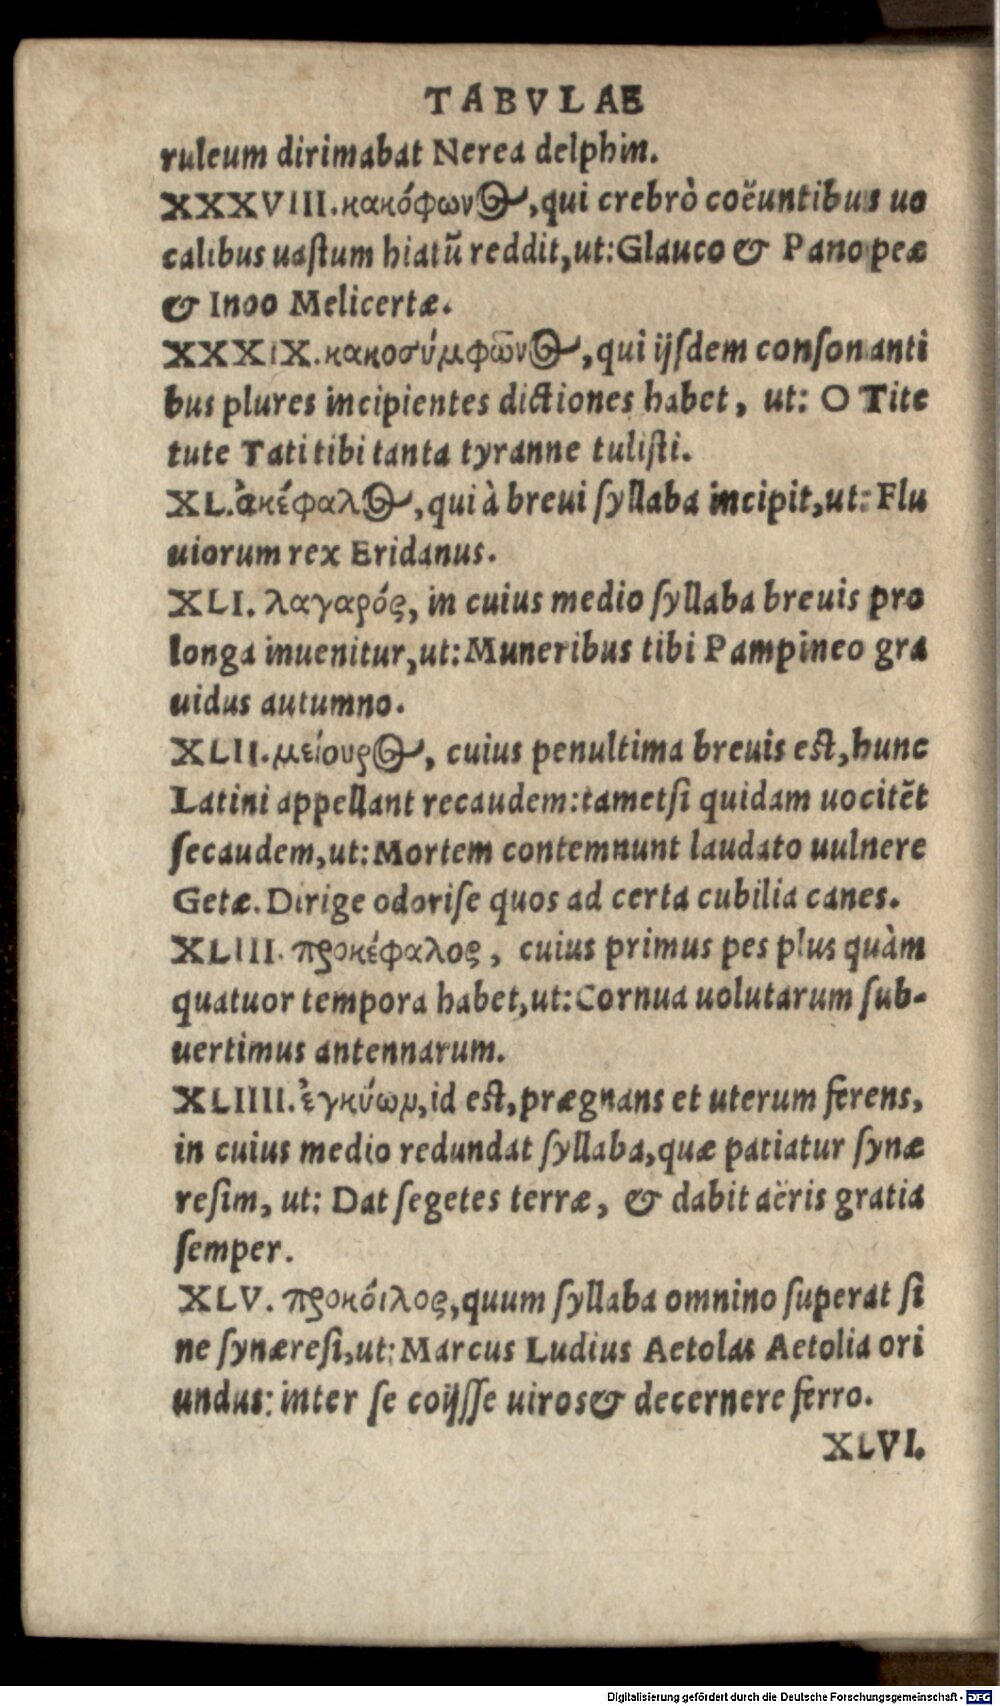 TABVLAE
ruleum dirimabat Nerea delphin.
XXXVIII. κακόφωνος, qui crebrò coëuntibus uo
calibus uastum hiatũ reddit, ut: Glauco & Panopeæ
& Inoo Melicertæ.
XXXIX. κακοσύμφωνος, qui ijsdem consonanti
bus plures incipientes dictiones habet, ut: O Tite
tute Tati tibi tanta tyranne tulisti.
XL. ἀκέφαλος, qui à breui syllaba incipit, ut: Flu
uiorum rex Eridanus.
XLI. λαγαρός, in cuius medio syllaba breuis pro
longa inuenitur, ut: Muneribus tibi Pampineo gra
uidus autumno.
XLII. μείουρος, cuius penultima breuis est, hunc
Latini appellant recaudem: tametsi quidam uocitẽt
secaudem, ut: Mortem contemnunt laudato uulnere
Getæ. Dirige odorise quos ad certa cubilia canes.
XLIII. προκέφαλος, cuius primus pes plus quàm
quatuor tempora habet, ut: Cornua uolutarum sub-
uertimus antennarum.
XLIIII. ἐγκύωμ, id est, prægnans et uterum ferens,
in cuius medio redundat syllaba, quæ patiatur synæ
resim, ut: Dat segetes terræ, & dabit aëris gratia
semper.
XLV. προκόιλος, quum syllaba omnino superat si
ne synæresi, ut: Marcus Ludius Aetolas Aetolia ori
undus: inter se coijsse uiros & decernere ferro.
XLVI.
Digitalisierung gefördert durch die Deutsche Forschungsgemeinschaft - DFG